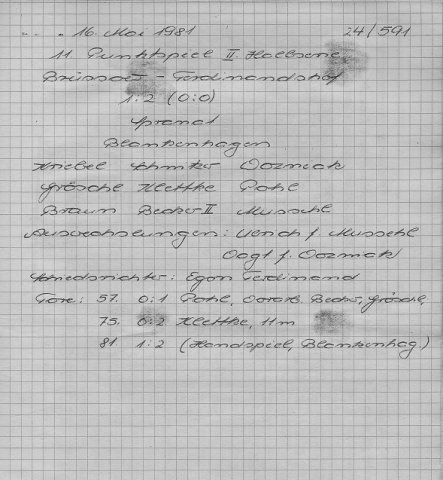 16. Mai 1981 24/591
11. Punktspiel II. Halbserie
Brüssow - Ferdinandshof
1:2 (0:0)
Spranat
Blankenhagen
Kriebel Schmker Oozmiak
Gröschl Klettke Pohl
Braun Becker II Muschl
Auswechslungen: Ulrich f. Muschl
Vogt f. Oozmiak
Schiedsrichter: Egon Ferdinand
Tore: 57. 0:1 Pohl, Vorarb. Becker, Gröschl,
75. 0:2 Klettke, 11m
81. 1:2 (Handspiel, Blankenhag.)